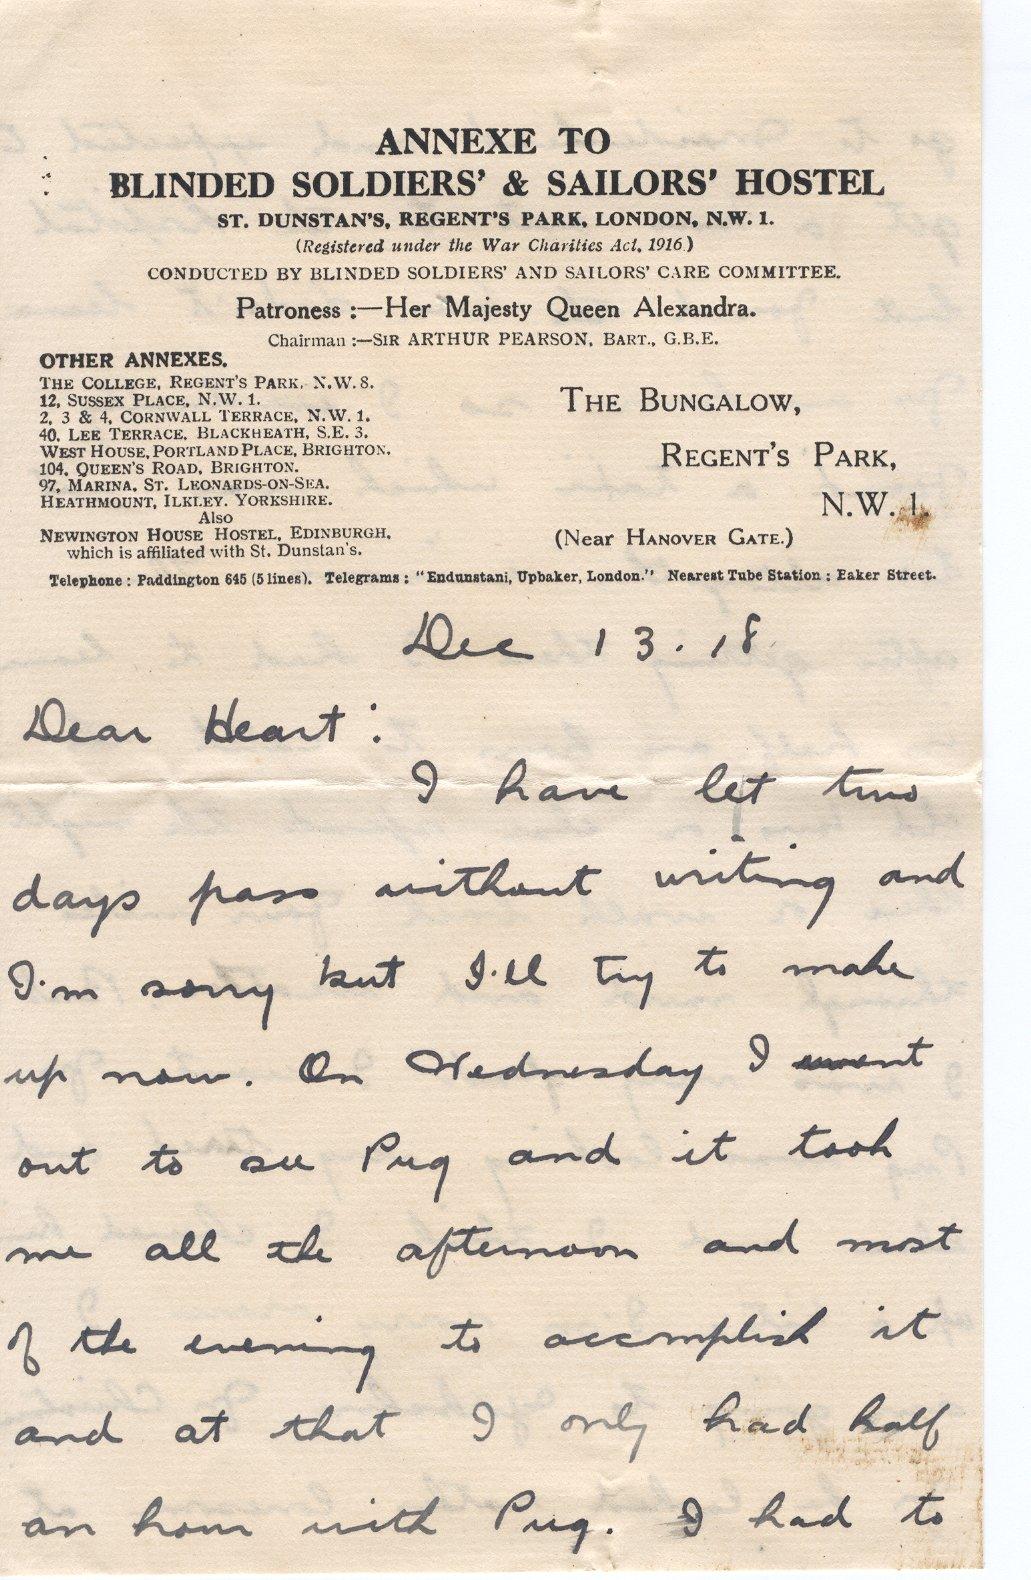 ANNEXE TO
BLINDED SOLDIERS' & SAILORS' HOSTEL
ST. DUNSTAN'S, REGENT'S PARK, LONDON, N.W. 1.
(Registered under the War Charities Act, 1916.)
CONDUCTED BY BLINDED SOLDIERS' AND SAILORS' CARE COMMITTEE.
Patroness :—Her Majesty Queen Alexandra.
Chairman :—SIR ARTHUR PEARSON, BART., G.B.E.
OTHER ANNEXES.
THE COLLEGE, REGENT'S PARK, N.W. 8.
12, SUSSEX PLACE, N.W. 1.
2, 3 & 4, CORNWALL TERRACE, N.W. 1.
40, LEE TERRACE, BLACKHEATH, S.E. 3.
WEST HOUSE, PORTLAND PLACE, BRIGHTON.
104, QUEEN'S ROAD, BRIGHTON.
97, MARINA, ST. LEONARDS-ON-SEA.
HEATHMOUNT, ILKLEY, YORKSHIRE.
Also
NEWINGTON HOUSE HOSTEL, EDINBURGH,
which is affiliated with St. Dunstan's.
THE BUNGALOW,
REGENT'S PARK,
N.W. 1.
(Near HANOVER GATE.)
Telephone : Paddington 645 (5 lines). Telegrams : "Endunstani, Upbaker, London." Nearest Tube Station : Baker Street.
Dec 13.18
Dear Heart:
I have let two
days pass without writing and
I'm sorry but I'll try to make
up now. On Wednesday I went
out to see Pug and it took
me all the afternoon and most
of the evening to accomplish it
and at that I only had half
an hour with Pug. I had to